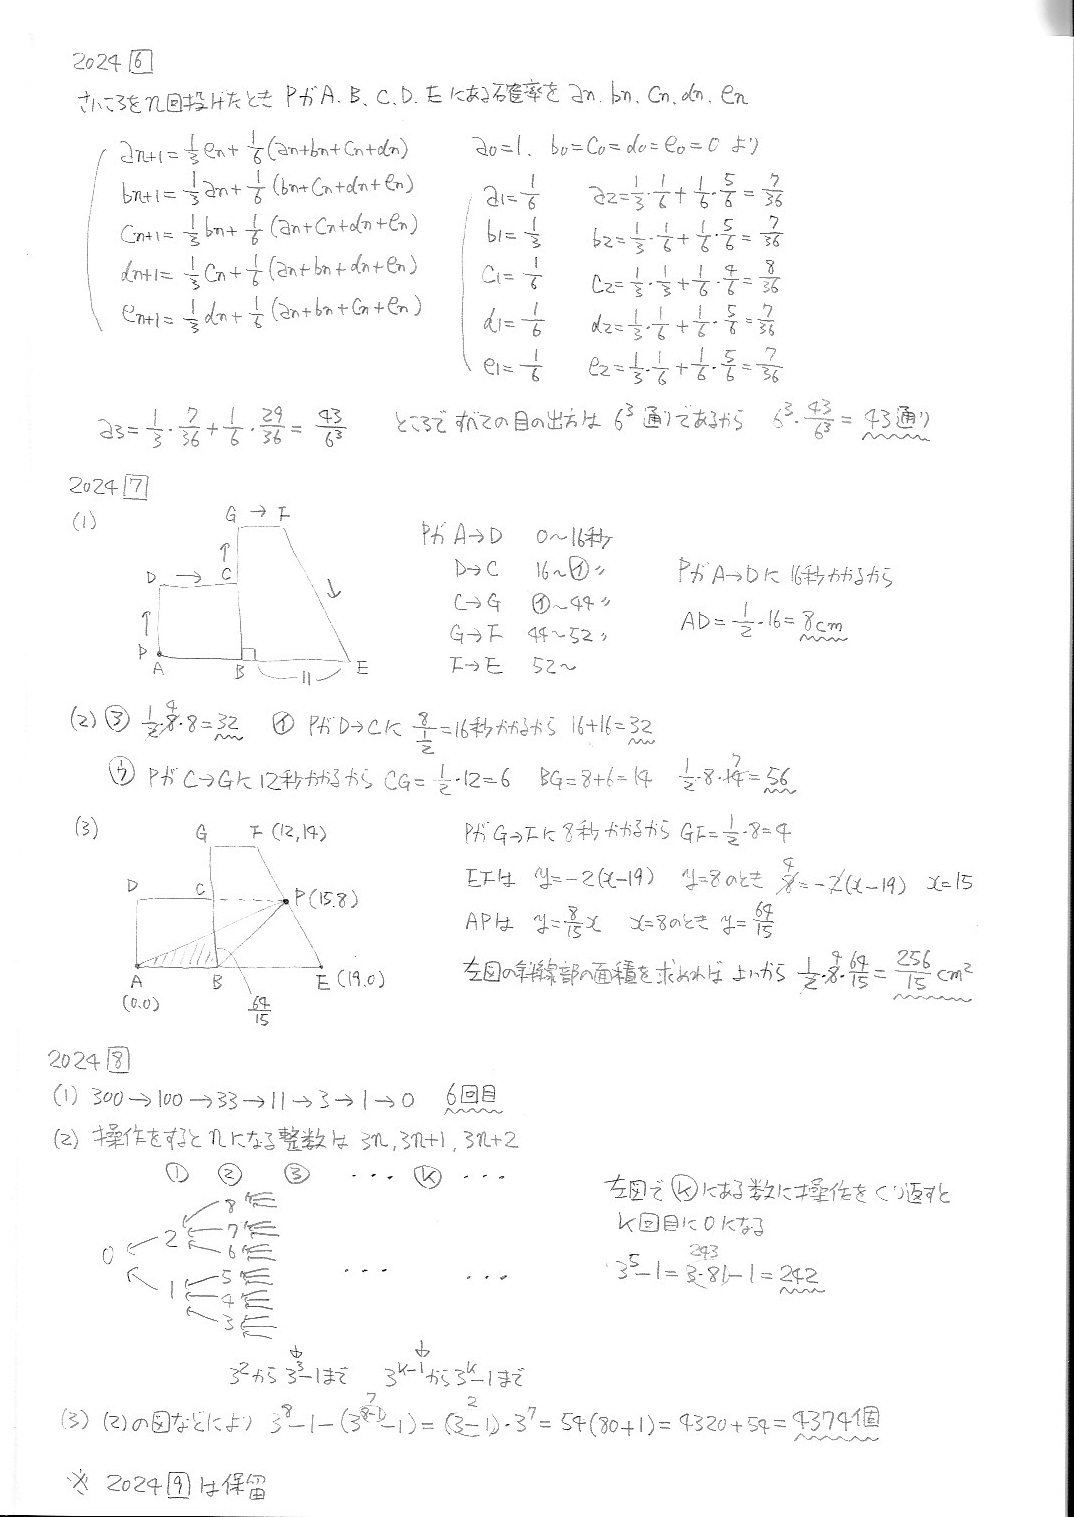 2024 6
さいころをn回投げたとき PがA.B.C.D.Eにある確率を an.bn.cn.dn.en
an+1=1/3 en+1/6(an+bn+cn+dn)
bn+1=1/3 an+1/6(bn+cn+dn+en)
cn+1=1/3 bn+1/6(an+cn+dn+en)
dn+1=1/3 cn+1/6(an+bn+dn+en)
en+1=1/3 dn+1/6(an+bn+cn+en)
a0=1. b0=c0=d0=e0=0 より
a1=1/6 a2=1/3・1/6+1/6・5/6=7/36
b1=1/3 b2=1/3・1/6+1/6・5/6=7/36
c1=1/6 c2=1/3・1/3+1/6・4/6=8/36
d1=1/6 d2=1/3・1/6+1/6・5/6=7/36
e1=1/6 e2=1/3・1/6+1/6・5/6=7/36
a3=1/3・7/36+1/6・29/36=43/6³ ところですべての目の出方は 6³通りであるから 6³・43/6³=43通り
2024 7
(1)
G → F
↑
D → C
↑
P
A B 11 E
↘
PがA→D 0〜16秒
D→C 16〜㋑〃
C→G ㋑〜44〃
G→F 44〜52〃
F→E 52〜
PがA→Dに16秒かかるから
AD=1/2・16=8cm
(2) ㋐ 1/2・8・8=32 4 ㋑ PがD→Cに 8/(1/2)=16秒かかるから 16+16=32
㋒ PがC→Gに12秒かかるから CG=1/2・12=6 BG=8+6=14 1/2・8・14=56 7
(3)
G F(12,14)
D C P(15.8)
A B E(19.0)
(0.0) 64/15
PがG→Fに8秒かかるから GF=1/2・8=4
EFは y=-2(x-19) y=8のとき 8=-2(x-19) x=15 4
APは y=8/15x x=8のとき y=64/15
左図の斜線部の面積を求めればよいから 1/2・8・64/15=256/15cm² 4
2024 8
(1) 300→100→33→11→3→1→0 6回目
(2) 操作をするとnになる整数は 3n,3n+1,3n+2
① ② ③ ・・・ ⓚ ・・・
0
2
1
8
7
6
5
4
3
・・・ ・・・
↓ ↓
3²から3³-1まで 3^k-1から3^k-1まで
左図でⓚにある数に操作をくり返すと
k回目に0になる
243
3⁵-1=3・81-1=242
(3) (2)の図などにより 3⁸-1-(3^8-1-1)=(3-1)・3⁷=54(80+1)=4320+54=4374個
7 2
※ 2024 9 は保留